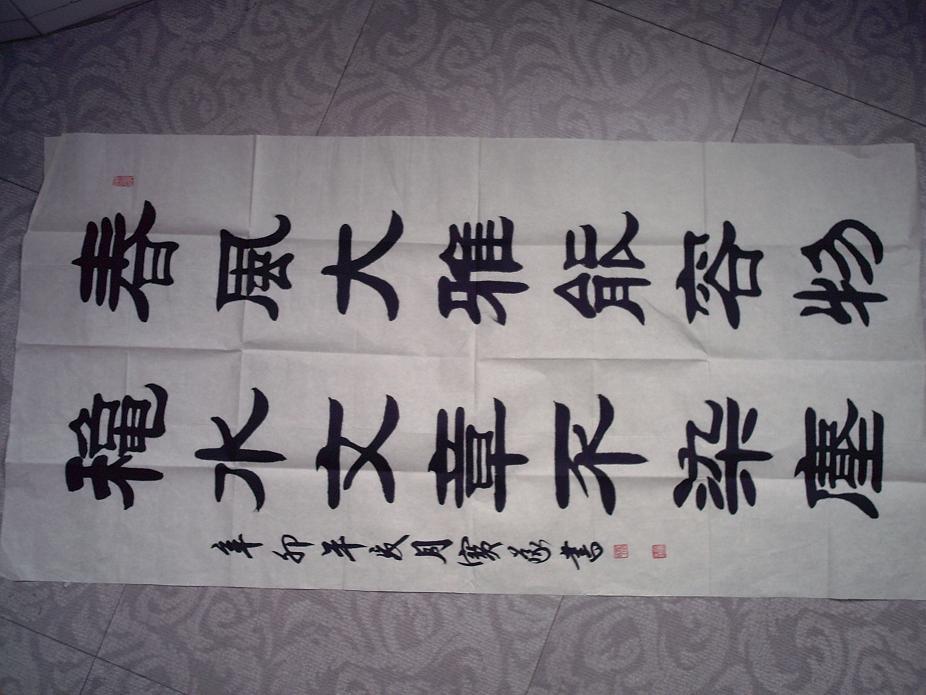 春風大雅能容物
穐水文章不染塵
辛卯年月書